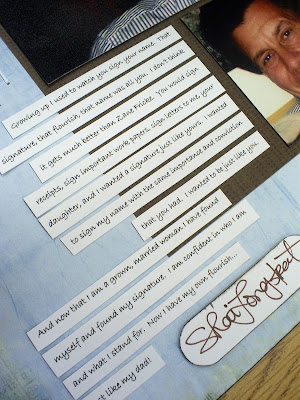 Growing up I used to watch you sign your name. That
signature, that flourish, that name was all you. I don't think
it gets much better than Zane Fricke. You would sign
receipts, sign important work papers, sign letters to me your
daughter, and I wanted a signature just like yours. I wanted
to sign my name with the same importance and conviction
that you had. I wanted to be just like you.
And now that I am a grown, married woman I have found
myself and found my signature. I am confident in who I am
and what I stand for. Now I have my own flourish...
t like my dad!